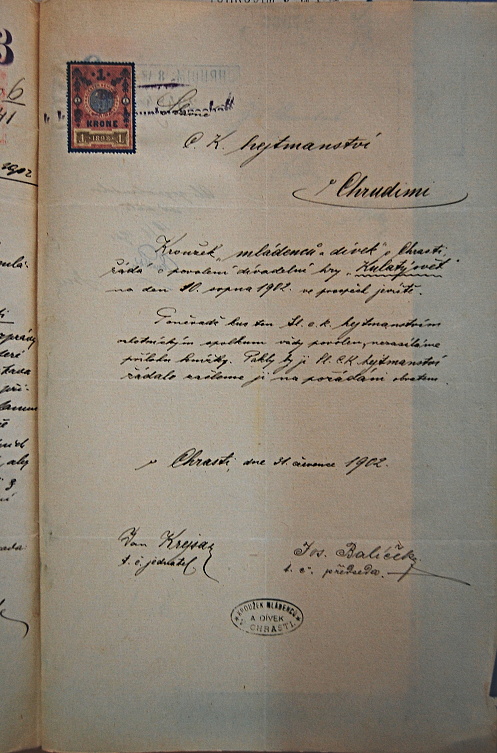 6
41
1
KRONE
1 1898 1
Slavné
C. K. hejtmanství
v Chrudimi
Kroužek „mládenců a dívek" v Chrasti,
žádá o povolení divadelní hry „Kulatý svět"
na den 10. srpna 1902. ve prospěch jeviště.
Poněvadž kus ten Sl. c. k. hejtmanstvím
ochotnickým spolkům vždy povolen, nezasíláme
přílohu knížky. Pakli by ji Sl. C.K. hejtmanství
žádalo zašleme ji na požádání obratem.
v Chrasti, dne 31. července 1902.
Jan Krejsa
t. č. jednatel
Jos. Balíček
t. č. předseda.
KROUŽEK MLÁDENCŮ
A DÍVEK
CHRASTI.